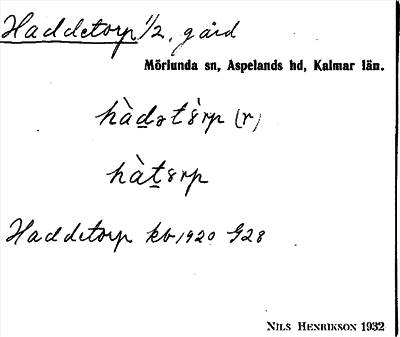 Haddetorp 1/2, gård
Mörlunda sn, Aspelands hd, Kalmar län.
hàd̲ət8̀rp (r)
hàt̲8rp
Haddetorp kb 1920 G28
NILS HENRIKSON 1932